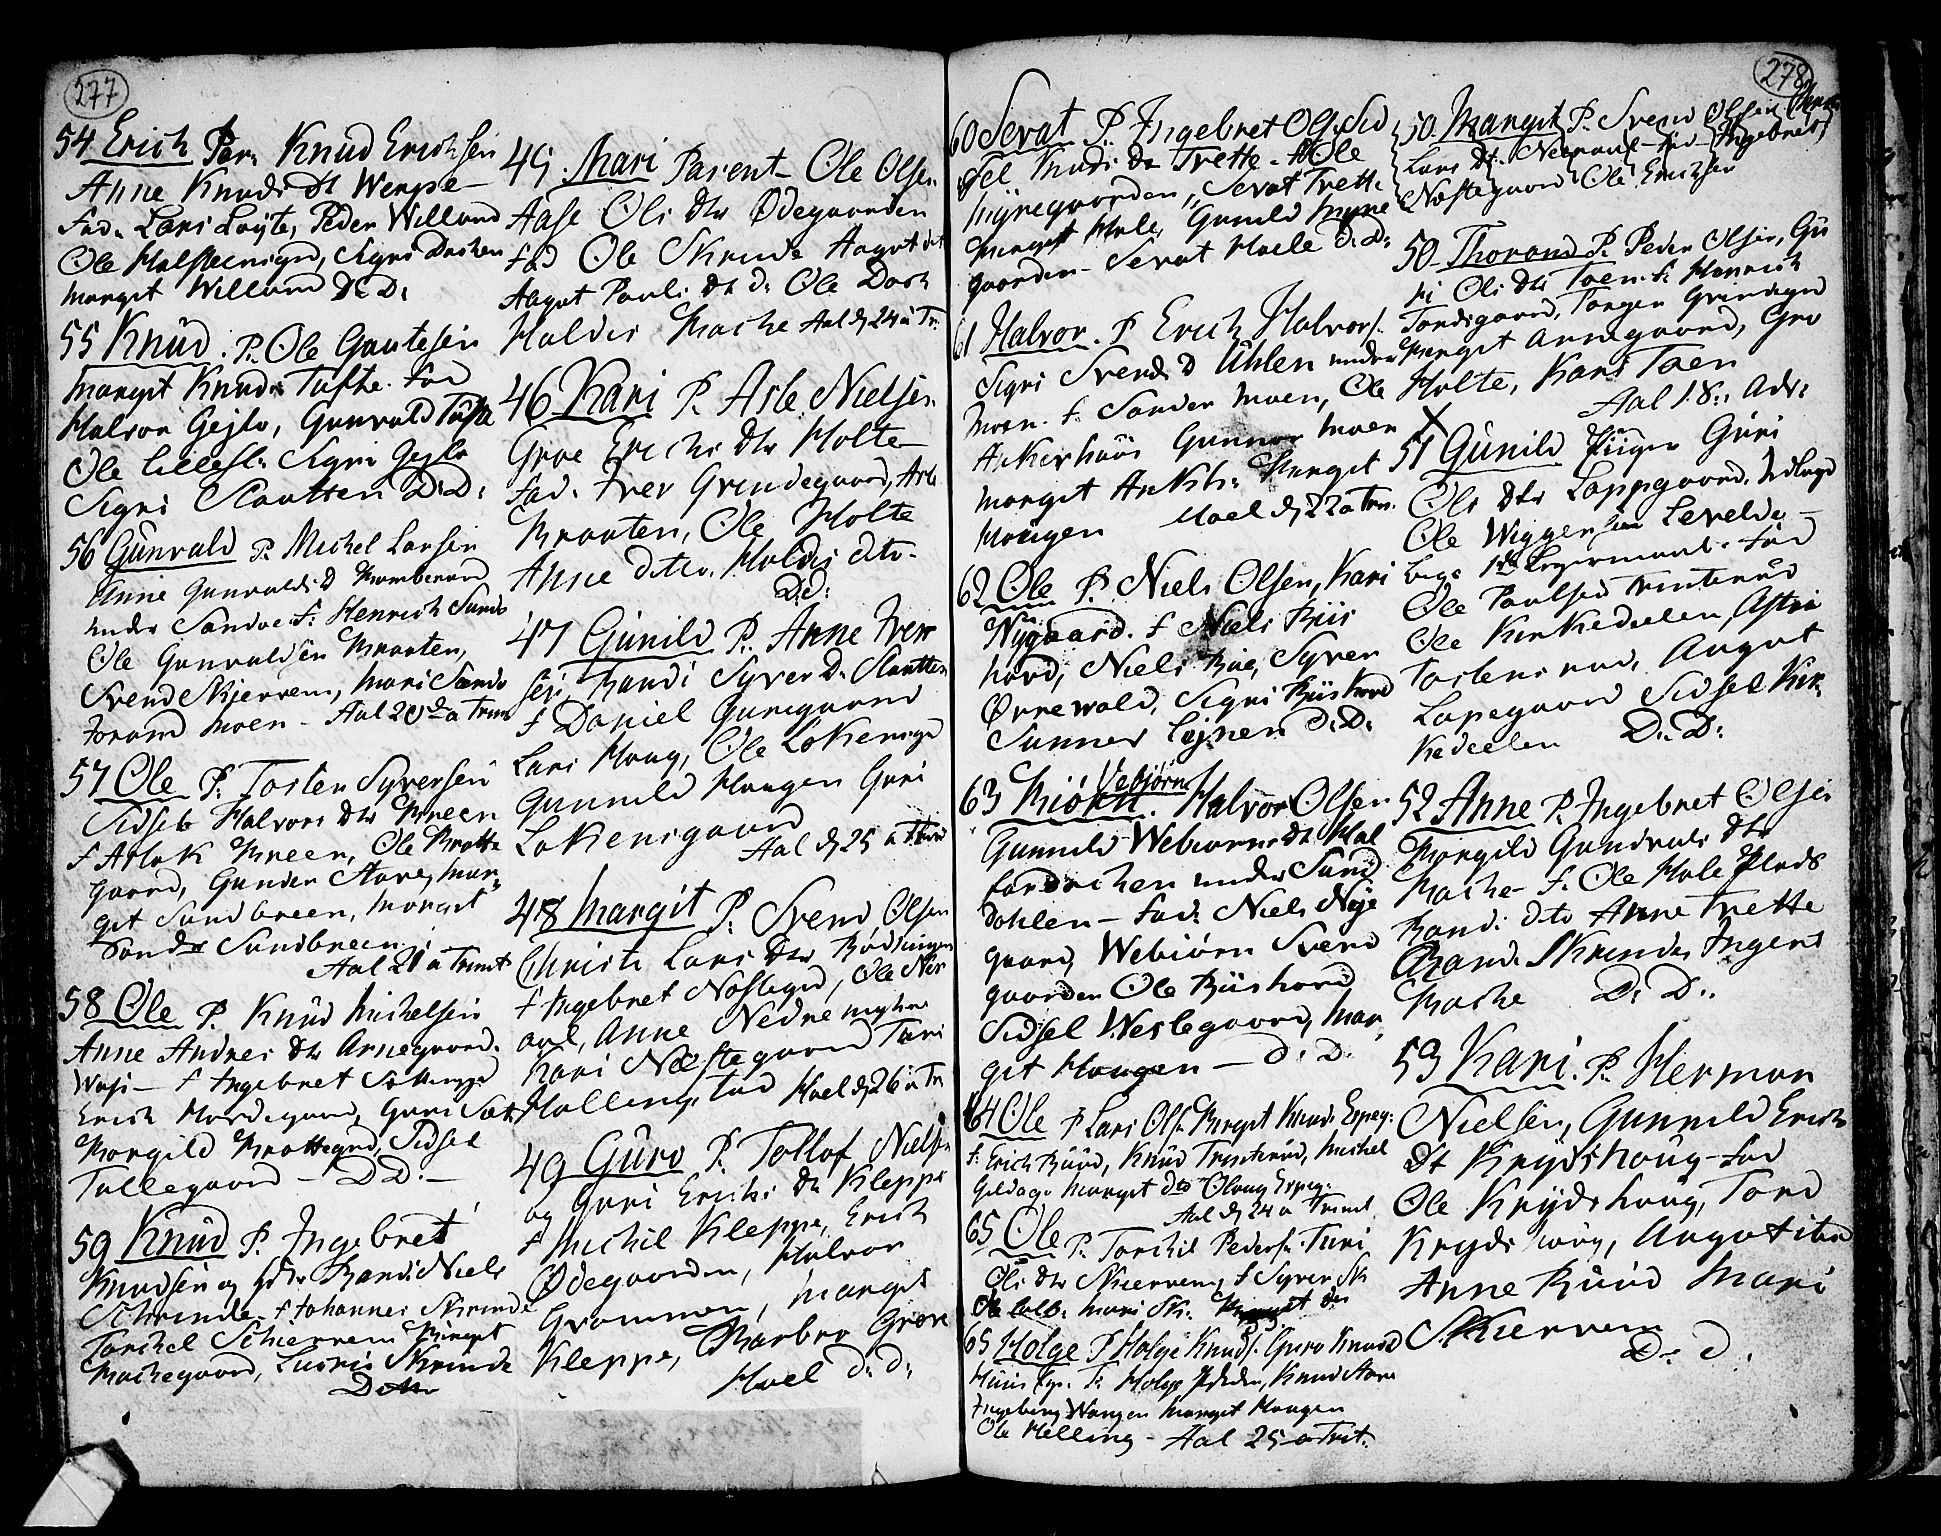 277
54 Erich Par. Knud Erichsen
Anne Knuds dt Wenge
Fad. Lars Løyte, Peder Willand
Ole Halsteensgd, Sigri Dochen
Marget Willand D: D:
55 Knud. P. Ole Gautesen
Marget Knuds Tufte. fad
Halvor Gejlo, Gunvald Tufte
Ole Lillesl: Sigri Gejlo
Sigri Slaatten D: D:
56 Gunvald P. Michel Larsen
Anne Gunvalds D
under Sandoe F: Henrich Sando
Ole Gunvaldsen Braaten,
Svend Skjerven, Mari Sando
Torand Moen - Aal 20de a Trin
57 Ole P. Tosten Syversen
Sidsel Halvors dtr Breen
f Aslak Breen, Ole Brotte
gaard, Gunder Aare, Mar-
get Sundbreen, Margit
Sundbreen.
Aal 21 a Trinit
58 Ole P. Knud Michelsen
Anne Andres dtr Arnegaard.
f Ingebret
Erich Hordegaard, Guri
Borgild Brottegrd, Sidsel
Tollegaard - D D. -
59 Knud P. Ingebret
Knudsen og Randi Niels
Schrinde f Johannes Skrinde
Torchel Schierven Birgit
Bachegaard, Skrinde
45. Mari Parent Ole Olsen
Aase Ols dtr Ødegaarden
Fad Ole Skrinde Aagot dit
Aagot Pouls dt d: Ole Doch
Haldis Bache Aal d 24 a Tr:
46 Kari P. Asle Nielsen
Groe Erichs Dtr Holte
Fad. Iver Grindegaard, Asle
Braaten, Ole Holte
Anne dito. Haldis dito-
D:d:
47 Gunild P. Anne Iver
sen, Randi Syver D. Slaatten
f Daniel Gurigaard
Lars Houg, Ole Løkensgd
Gunnild Haugen Guri
Løkensgaard
Aal d 25 a Trin
48 Margit P. Svend Olsen
Christi Lars Dtr Rødningen
f Ingebret Nøstegrd, Ole Ner
aal, Anne Nedre
Kari Næstegaard Turi
Hallingstad Hoel d 26 a Tr
49 Guro P. Tollof Nielsen
og Guri Erichs dtr Kleppe
f Michil Kleppe, Erich
Ødegaarden, Halvor
Grommen, Marget
Kleppe, Barbro Groe
Hoel d: d:
278
60 Sevat P. Ingebret Ols: Sid
sel Knuds dr Trette. f Ole
Myregaarden, Sevat Trette
Marget Hole, Gunild Myre
gaarden - Sevat Hoele D: D:
61 Halvor. P Erich Halvors.
Sigri Svends d Uhlen under
Moen. f. Sander Moen, Ole
Ankerhuus Gunnor Moen
Marget Ankh: Marget
Hougen Hoel d 22 a Trin.
62 Ole P Niels Olsen, Kari
Nygaard. f Niels Riis
hord, Niels Roe, Syver
Ørnewald, Sigri Riishord
Sunnev Lejnen D: D:
63 Biørn Vebjørn. Halvor Olsen
Gunnild Webiørns dr Hal
fardochen under Sund
dohlen - Fad. Niels Nye
gaard, Webiørn Svend
gaarden Ole Riishord
Sidsel Weslegaard, Mar,
get Haugen - d. D.
64 Ole P Lars Ols. Marget Knuds Espeg:
f: Erich Ruud, Knud Trinterud, Michel
Goldage Marget dto Olaug Espeg:
Aal d 24 a Trinit
65 Ole P. Torchil Peders. Turi
Ols dtr Skierven, f Syver Sk
Mari Sk: Marget do
65 Holge P Holge Knuds. Guro Knuds
F. Holge, Knud Aare
Ingeborg Wangen Marget Haugen
Ole Helling - Aal 25 a Trit.
50. Margit P. Svend Olsen
Lars dt. Neeraal - fad - Ingebret
Nøstegaard Ole Erichsen
50 Thorand P. Peder Olsen, Gu
ri Ols dtr Toen. f. Henrich
Tordsgaard, Torger Grindegrd
Marget Arnegaard, Gro
Holte, Kari Toen
Aal 18: Adv:
X
51 Gunild Piigen Guri
Ols dtr Loppgaard, udlagd
Ole Wiggensen Levelde -
Fad
Ole Poulsen Trinterud
Ole Kirkedeelen, Astri
Tostensrud, Aagot
Lopegaard Sidsel Kir-
kedeelen D: D:
52 Anne P. Ingebret Olsen
Borgild Gundvals Dtr
Bache f. Ole Hole Plads
Randi dito Anne Trette
Randi Skrinde, Ingens
Bache D: D.
53 Kari. P. Herman
Nielsen, Gunnild Erich
dt Krydshoug - fad
Ole Krydshoug, Tord
Krydshoug, Aagot ibid
Anne Ruud Mari
Skierven
D: d: